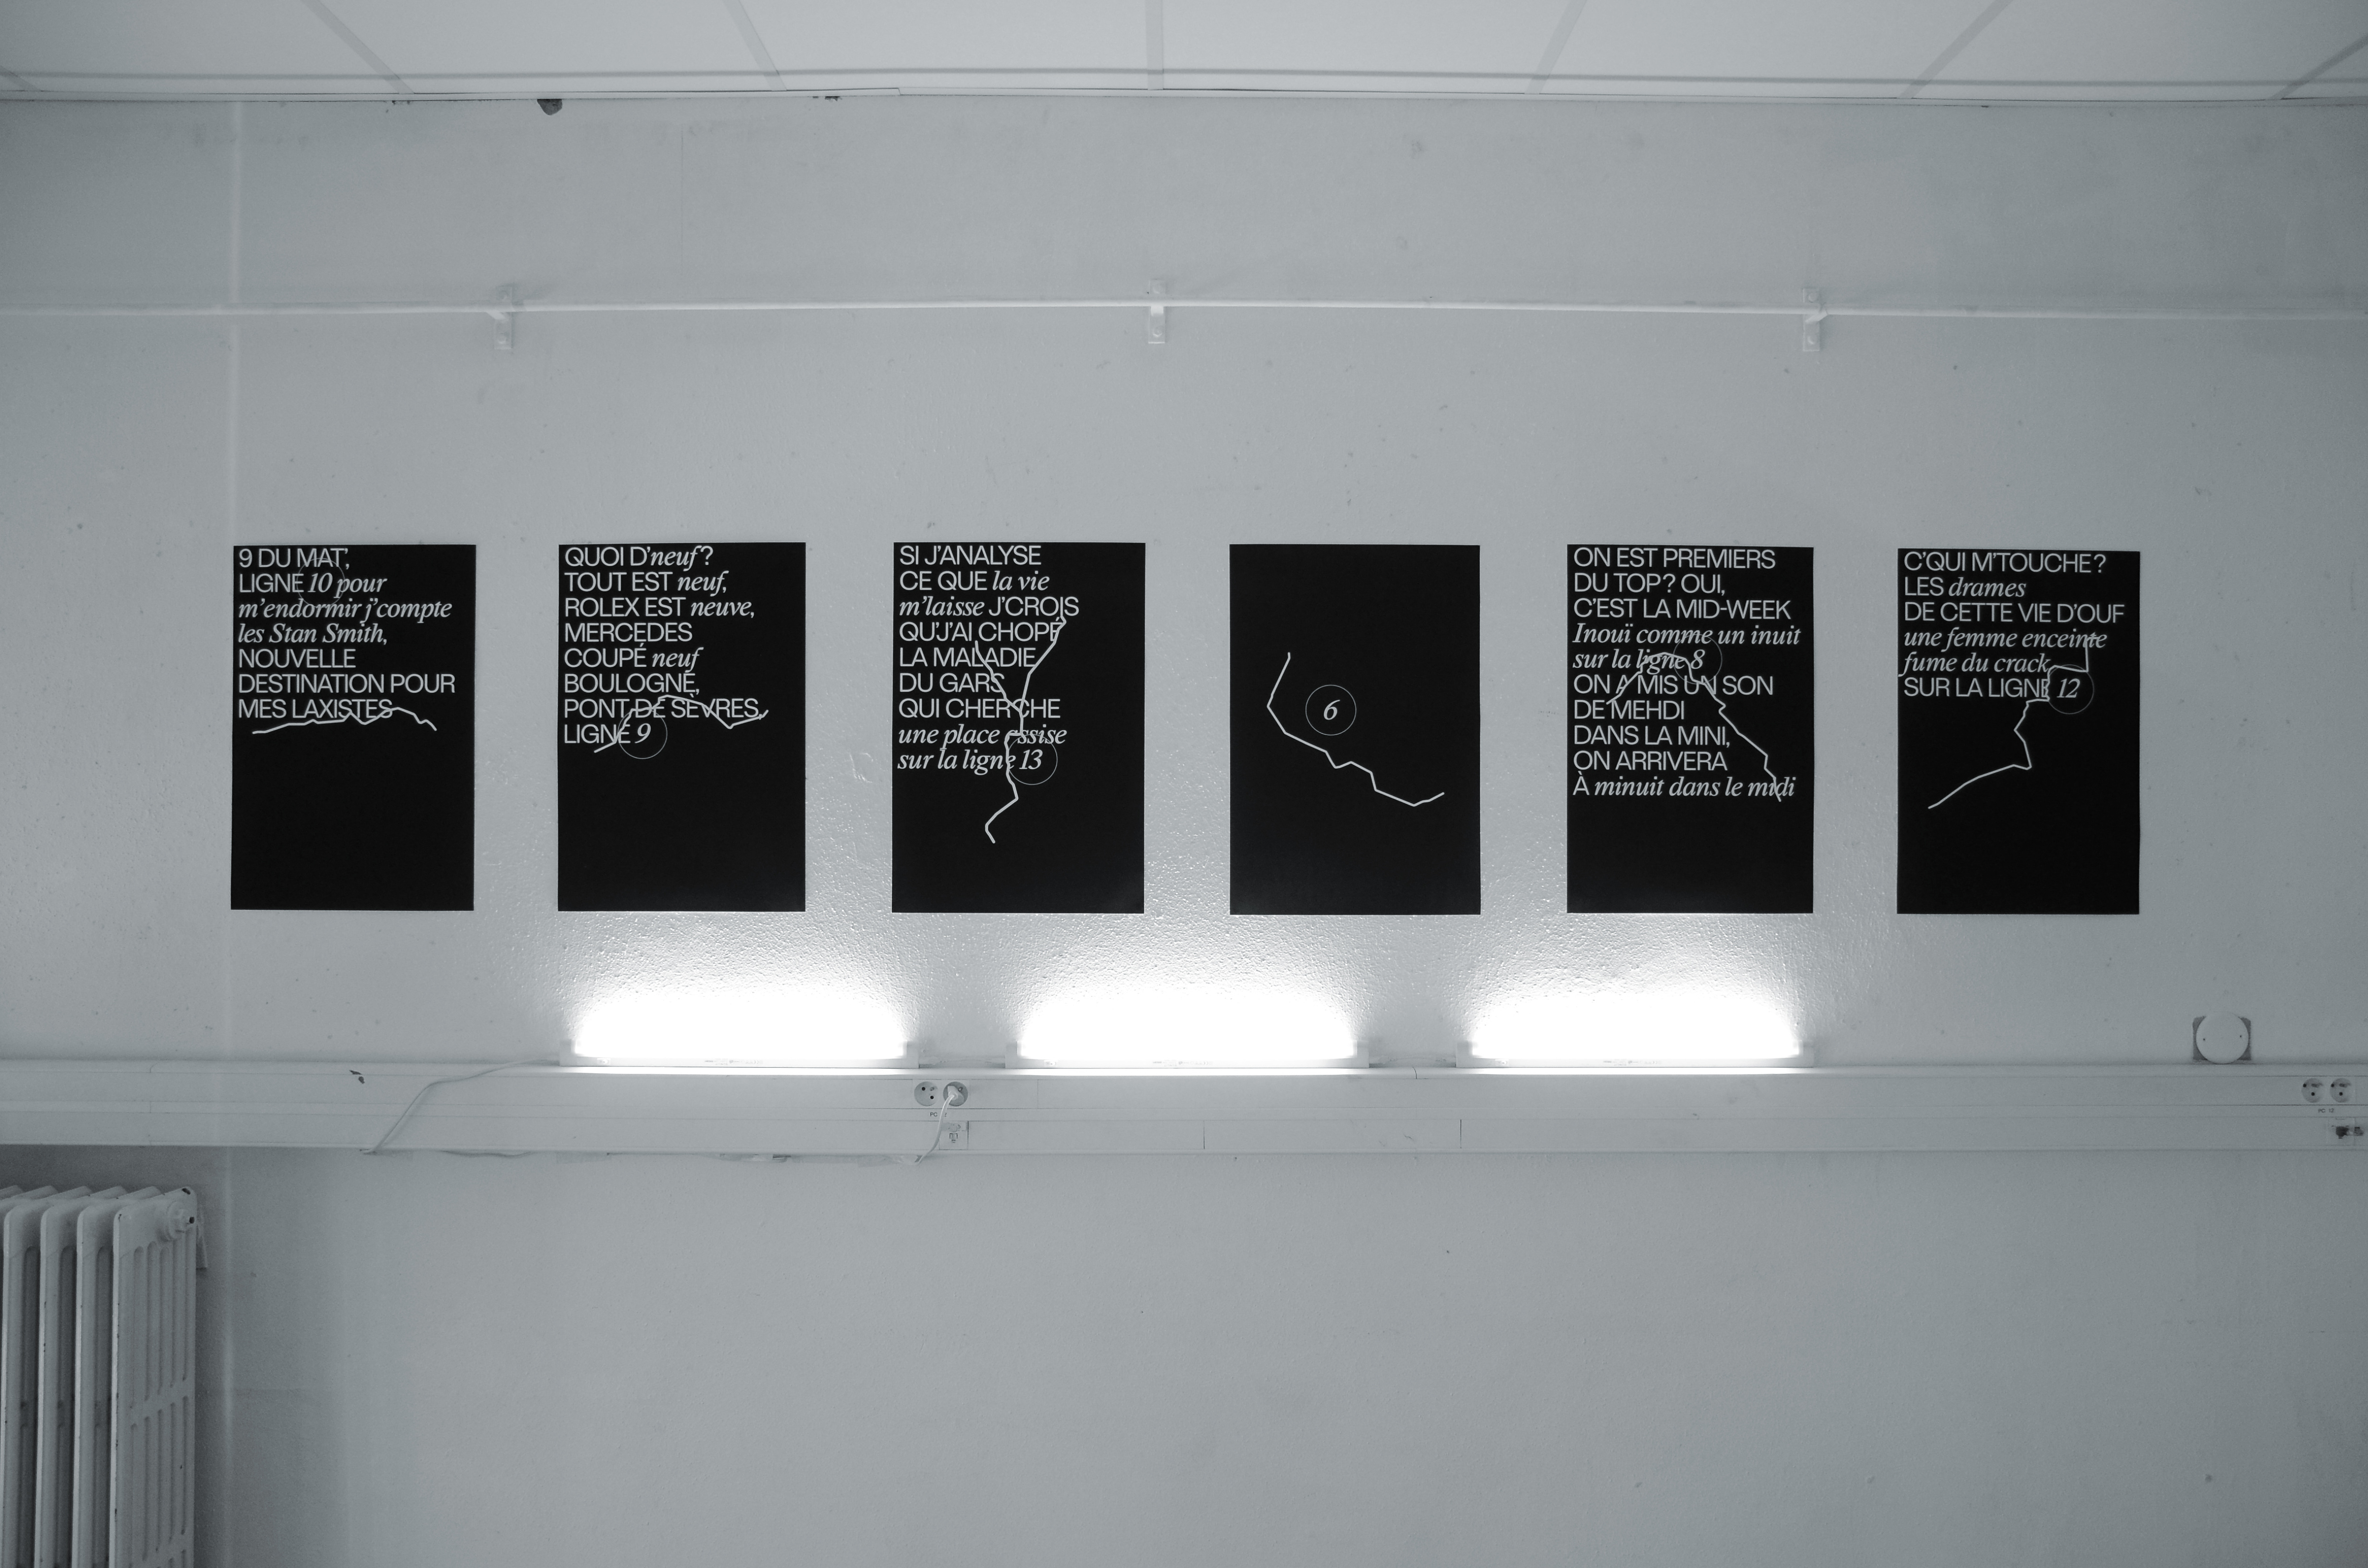 9 DU MAT',
LIGNE 10 pour
m'endormir j'compte
les Stan Smith,
NOUVELLE
DESTINATION POUR
MES LAXISTES
QUOI D'neuf?
TOUT EST neuf,
ROLEX EST neuve,
MERCEDES
COUPÉ neuf
BOULOGNE,
PONT DE SÈVRES,
LIGNE 9
SI J'ANALYSE
CE QUE la vie
m'laisse J'CROIS
QU'J'AI CHOPÉ
LA MALADIE
DU GARS
QUI CHERCHE
une place assise
sur la ligne 13
6
ON EST PREMIERS
DU TOP? OUI,
C'EST LA MID-WEEK
Inouï comme un inuit
sur la ligne 8
ON A MIS UN SON
DE MEHDI
DANS LA MINI,
ON ARRIVERA
À minuit dans le midi
C'QUI M'TOUCHE?
LES drames
DE CETTE VIE D'OUF
une femme enceinte
fume du crack
SUR LA LIGNE 12